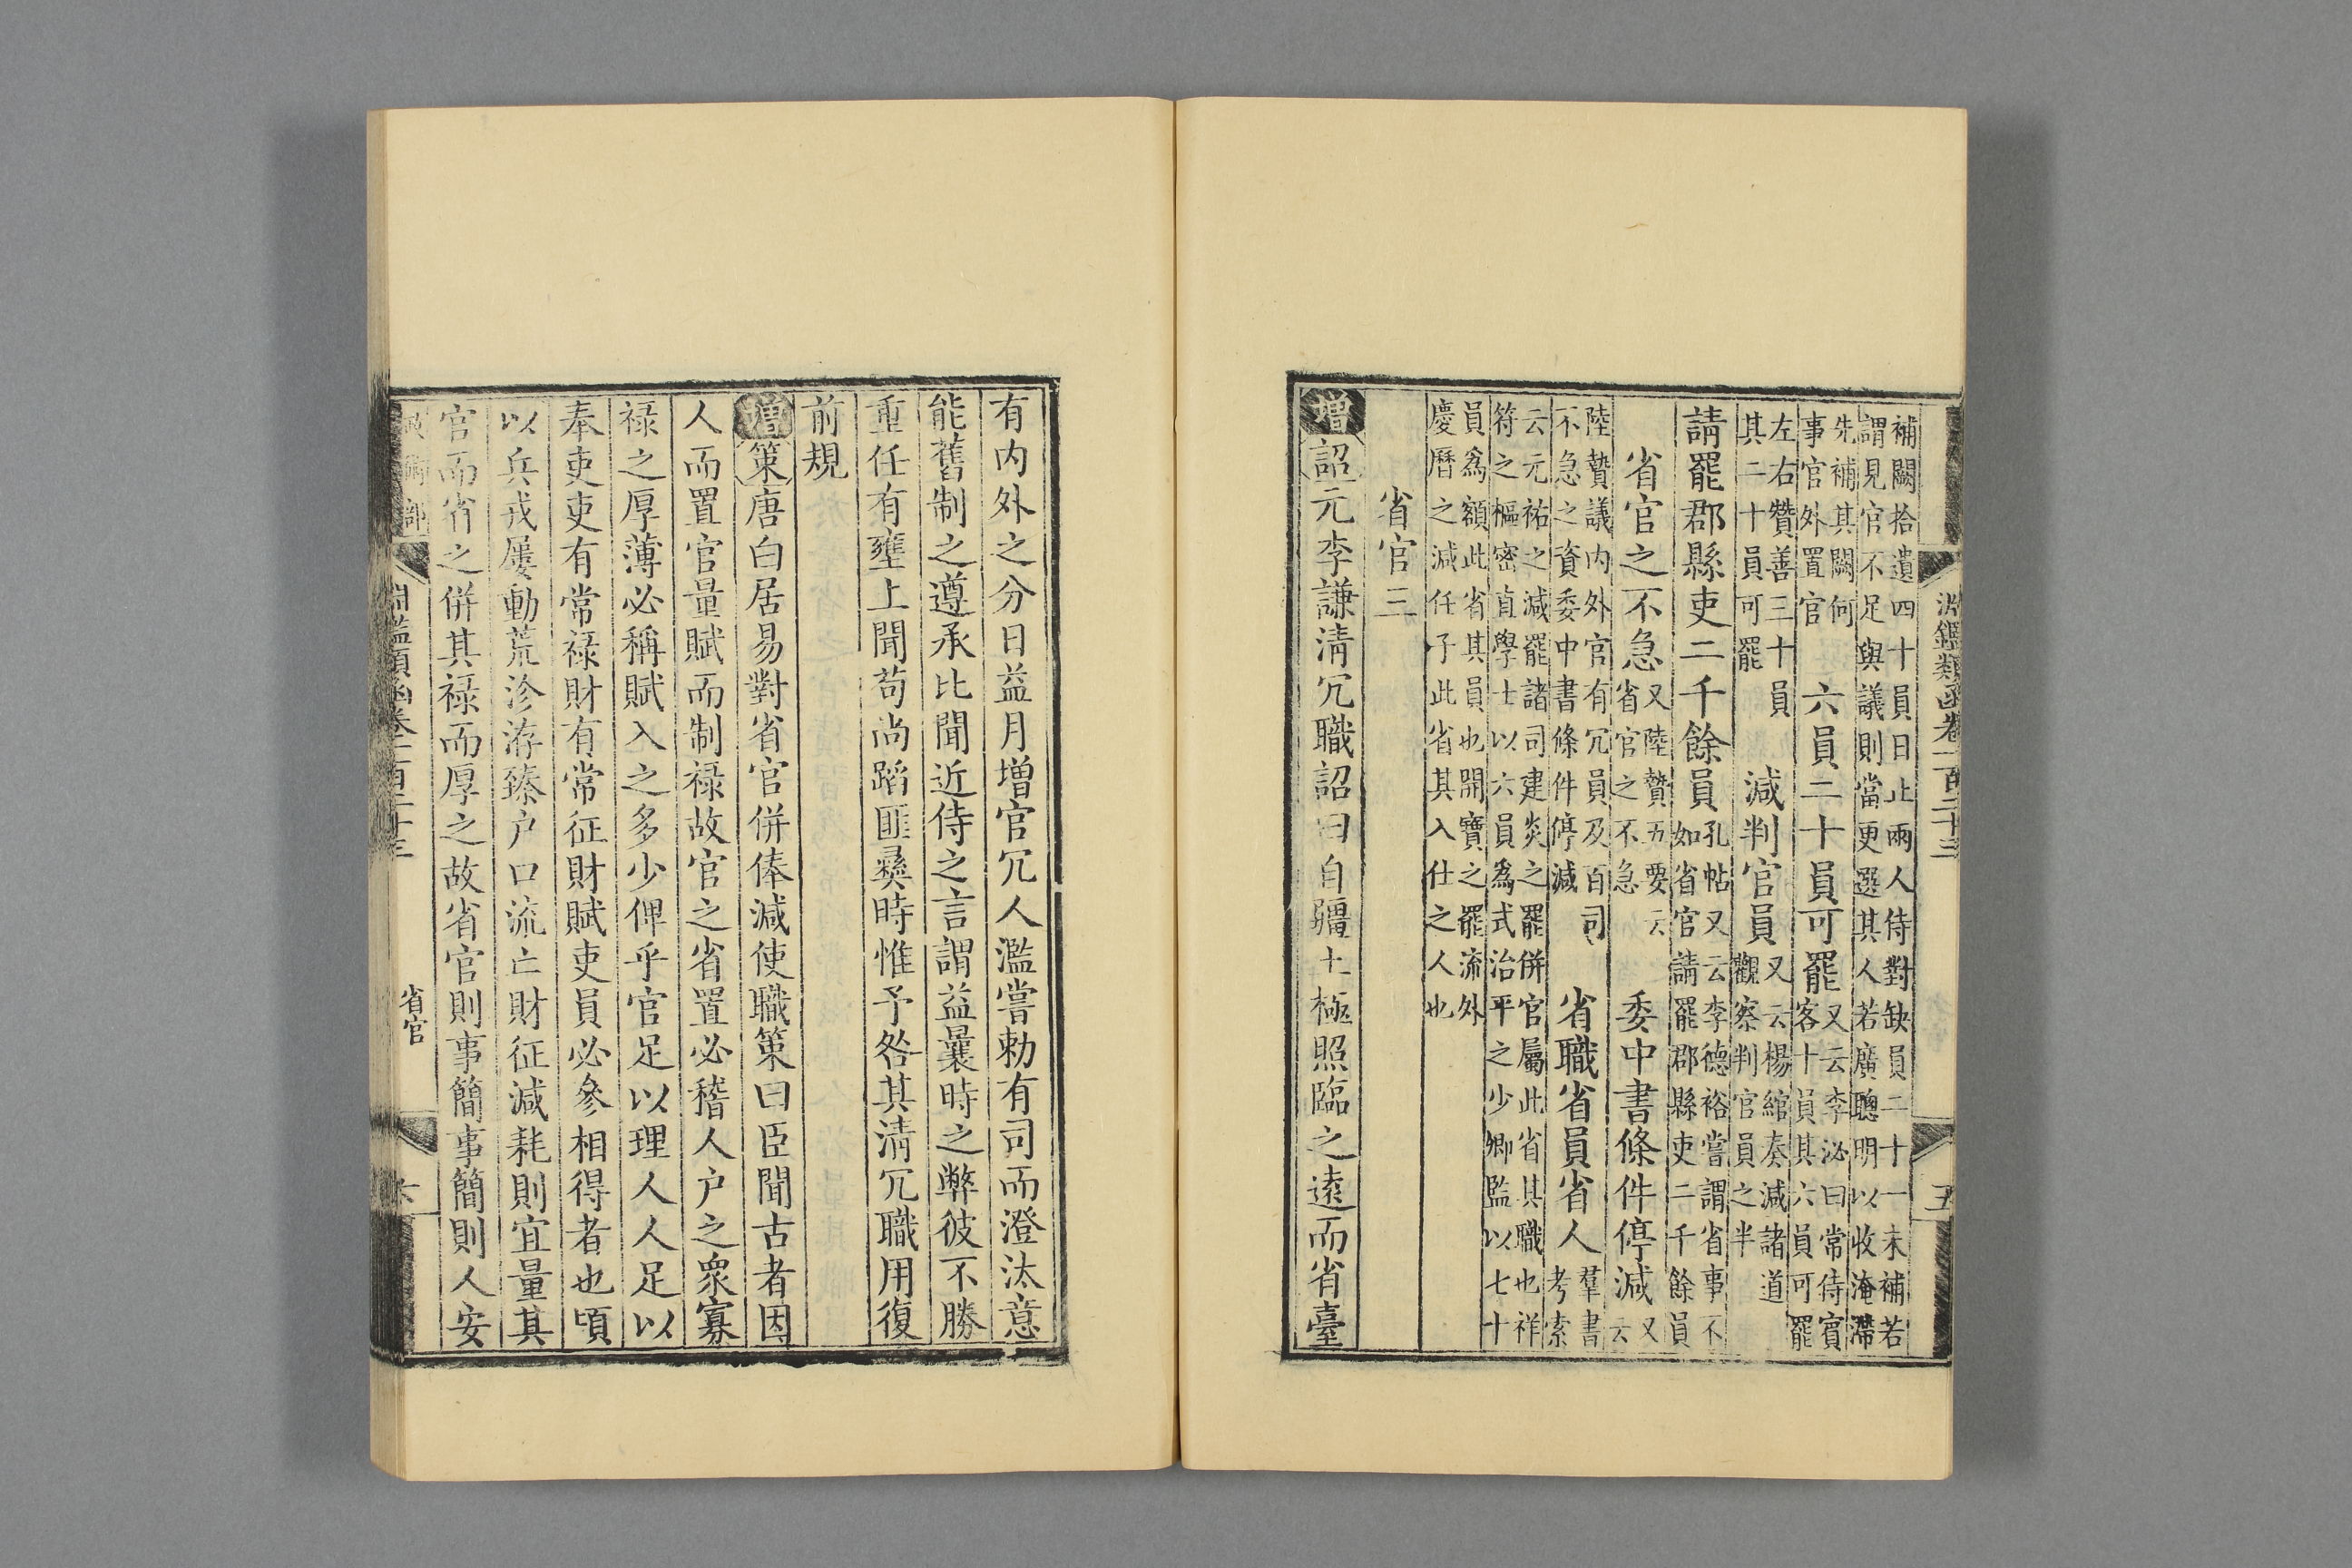 淵鑑類函卷一百二十三 五
補闕拾遺四十員日止兩人侍對缺員二十一未補若
謂見官不足與議則當更選其人若廣聰明以收淹滯
先補其闕何
事官外置官
六員二十員可罷
又云李泌曰常侍賓
客十員其六員可罷
左右贊善三十員
其二十員可罷
減判官員
又云楊綰奏減諸道
觀察判官員之半
請罷郡縣吏二千餘員
孔帖又云李德裕嘗謂省事不
如省官請罷郡縣吏二千餘員
省官之不急
又陸贄五要云
省官之不急
委中書條件停減
又
云
陸贄議内外官有冗員及百司
不急之資委中書條件停減
省職省員省人
羣書
考索
云元祐之減罷諸司建炎之罷併官屬此省其職也祥
符之樞密直學士以六員爲式治平之少卿監以七十
員爲額此省其員也開寶之罷流外
慶曆之減任子此省其入仕之人也
省官三
增詔元李謙淸冗職詔曰自疆土極照臨之遠而省臺
有内外之分日益月增官冗人濫嘗勅有司而澄汰意
能舊制之遵承比聞近侍之言謂益曩時之弊彼不勝
重任有壅上聞苟尚蹈匪彝時惟予咎其淸冗職用復
前規
增策唐白居易對省官併俸減使職策曰臣聞古者因
人而置官量賦而制祿故官之省置必稽人户之衆寡
祿之厚薄必稱賦入之多少俾乎官足以理人人足以
奉吏吏有常祿財有常征財賦吏員必參相得者也頃
以兵戎屢動荒沴洊臻户口流亡財征減耗則宜量其
官而省之併其祿而厚之故省官則事簡事簡則人安
淵鑑類函卷一百二十三 省官 六